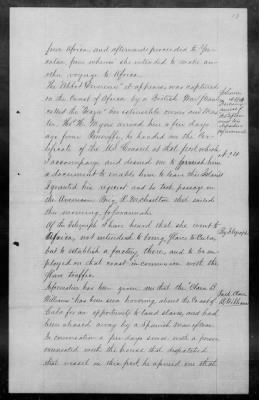 from Africa and afterwards proceeded to
catan, from whence she intended to make an-
other voyage to Africa.
The "Abbot Devereux" it appears, was captured
on the Coast of Africa by a British War Steam-
called the her ostensible owner and Mas-
ter, Thos. H. Myers arrived here a few days
ago from Teneriffe, he handed me the Cer-
tificate of the U.S. Consul at that port which
I accompany and desired me to furnish him
a document to enable him to leave the Island
I granted his request and he took passage in
the American Brig A. which sailed
this morning for Savannah.
Of the telegraph I have heard that she went to
Africa, not intended to bring Slaves to Cuba,
but to establish a factory there, and to be em-
ployed on that coast in connexion with the
Slave traffic.
Information has been given me that the "Clara B.
Williams" has been seen hovering about the Coast of
Cuba for an opportunity to land slaves, and had
been chased away by a Spanish Man of War.
In conversation a few days since with a person
connected with the house that dispatched
that vessel in this port he assured me that